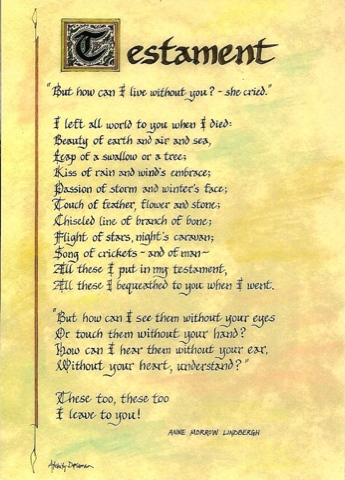 Testament
"But how can I live without you? - she cried."
I left all world to you when I died:
Beauty of earth and air and sea,
Leap of a swallow or a tree;
Kiss of rain and wind's embrace;
Passion of storm and winter's face;
Touch of feather, flower and stone;
Chiseled line of branch of bone;
Flight of stars, night's caravan;
Song of crickets - and of man -
All these I put in my testament,
All these I bequeathed to you when I went.
"But how can I see them without your eyes
Or touch them without your hand?
How can I hear them without your ear,
Without your heart, understand?"
These too, these too
I leave to you!
ANNE MORROW LINDBERGH